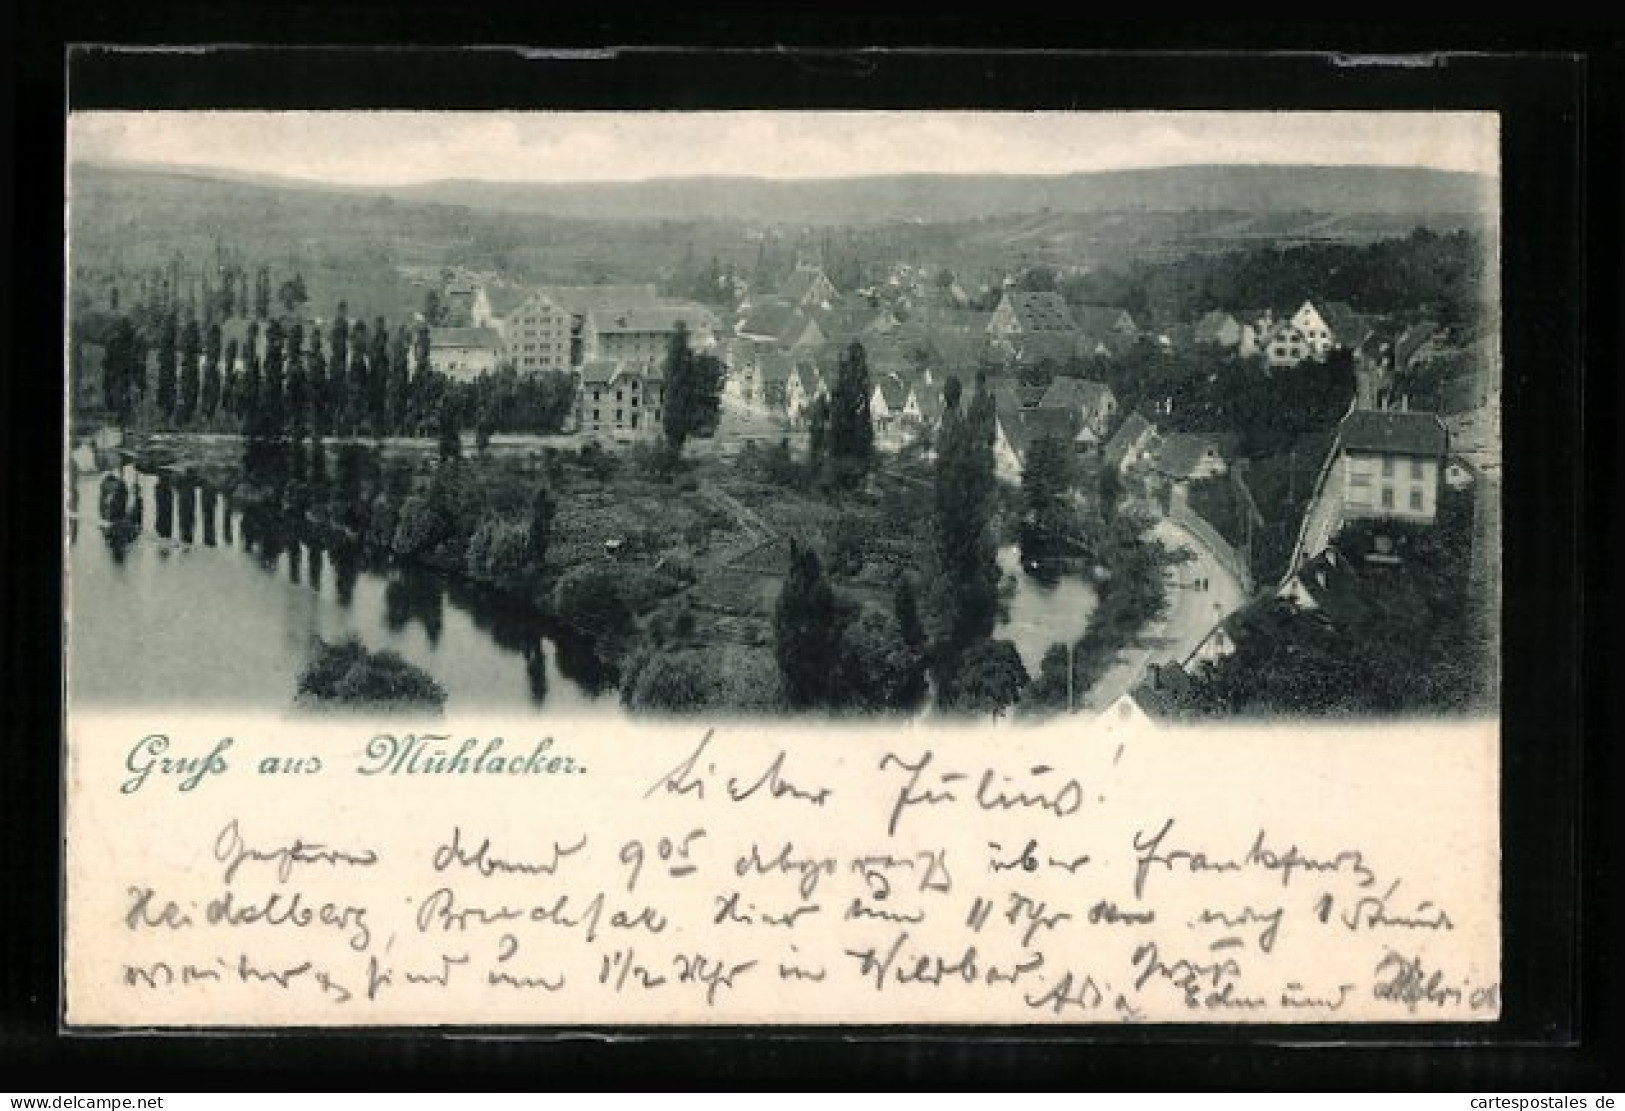 Gruß aus Mühlacker.
Lieber Julius!
Gestern Abend 9⁰⁵ abgereist über Frankfurt,
Heidelberg, Bruchsal. Hier um 11 Uhr nach 1 Stunde
weiter, sind um 1½ Uhr in Wildbad. Gruß
Edmund
www.cartespostales.com
cartespostales de